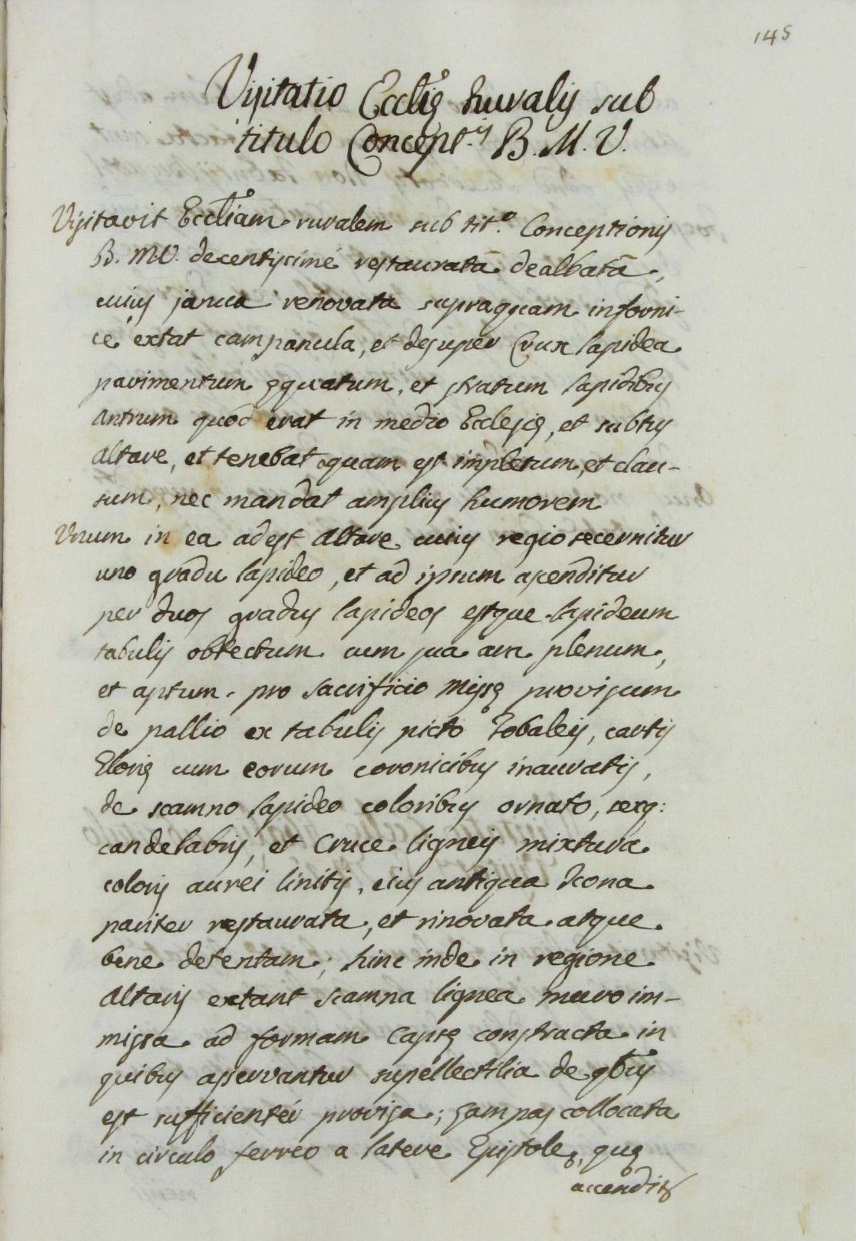 145
Visitatio Ecclię ruralis sub
titulo Concept.is B. M. V.
Visitavit Eccliam ruralem sub tit.o Conceptionis
B. MV. decentissimè restauratā dealbatā,
cuius janua renovata supraquam in forni-
ce extat campanula, et desuper Crux lapidea
pavimentum ęquatum, et stratum lapidibus
Antrum quod erat in medio Ecclesię, et subtus
Altare, et tenebat aquam est impletum, et clau-
sum, nec mandat amplius humorem
Unum in ea adest Altare cuius regio secernitur
uno gradu lapideo, et ad ipsum ascenditur
per duos gradus lapideos estque lapideum
tabulis obtectum cum sua ara plenum,
et aptum pro sacrificio Missę provisum
de pallio ex tabulis picto Tobaleis, cartis
Glorię cum eorum coronicibus inauratis,
de scamno lapideo coloribus ornato, sex
candelabris, et Cruce ligneis mixtura
coloris aurei linitis, eius antiqua Icona
pariter restaurata, et rinovata atque
bene detentam; hinc inde in regione
Altaris extant scamna lignea muro im-
missa ad formam Capsę constracta in
quibus asservantur supellectilia de qbus
est sufficienter provisa; Lampas collocata
in circulo ferreo a latere Epistolę, quę
accendit